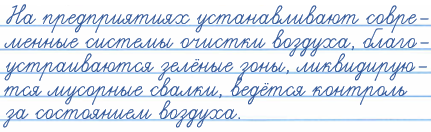 На предприятиях устанавливают совре-
менные системы очистки воздуха, благо-
устраиваются зелёные зоны, ликвидирую-
тся мусорные свалки, ведётся контроль
за состоянием воздуха.